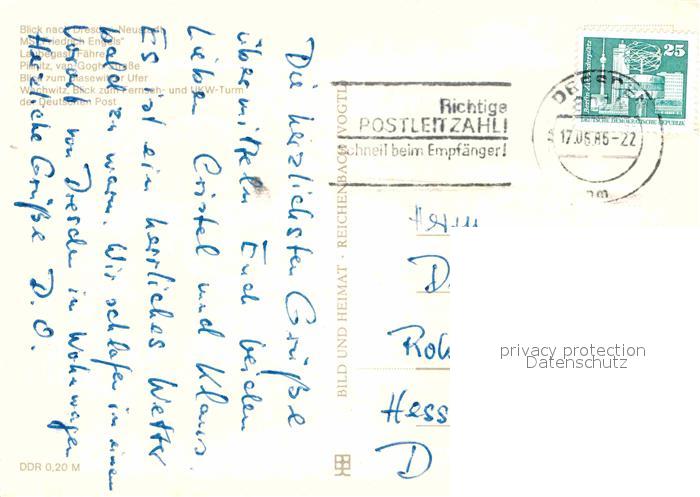 Blick nach Dresden-Neustadt
MS "Friedrich Engels"
Laubegast, Fähre
Pillnitz, van-Gogh-Straße
Blick zum Blasewitzer Ufer
Wachwitz, Blick zum Fernseh- und UKW-Turm
der Deutschen Post
Die herzlichsten Grüße
übermitteln Euch beiden
Lieben Cristel und Klaus.
Es ist ein herrliches Wetter
bald zu warm. Wir schlafen in einem
von Dresden in Wohnwagen
Herzliche Grüße D. O.
DDR 0,20 M
BILD UND HEIMAT · REICHENBACH VOGTL
Richtige
POSTLEITZAHL!
schnell beim Empfänger!
DRESDEN
17.06.85-22
25
DEUTSCHE DEMOKRATISCHE REPUBLIK
D.
Hess
D
privacy protection
Datenschutz